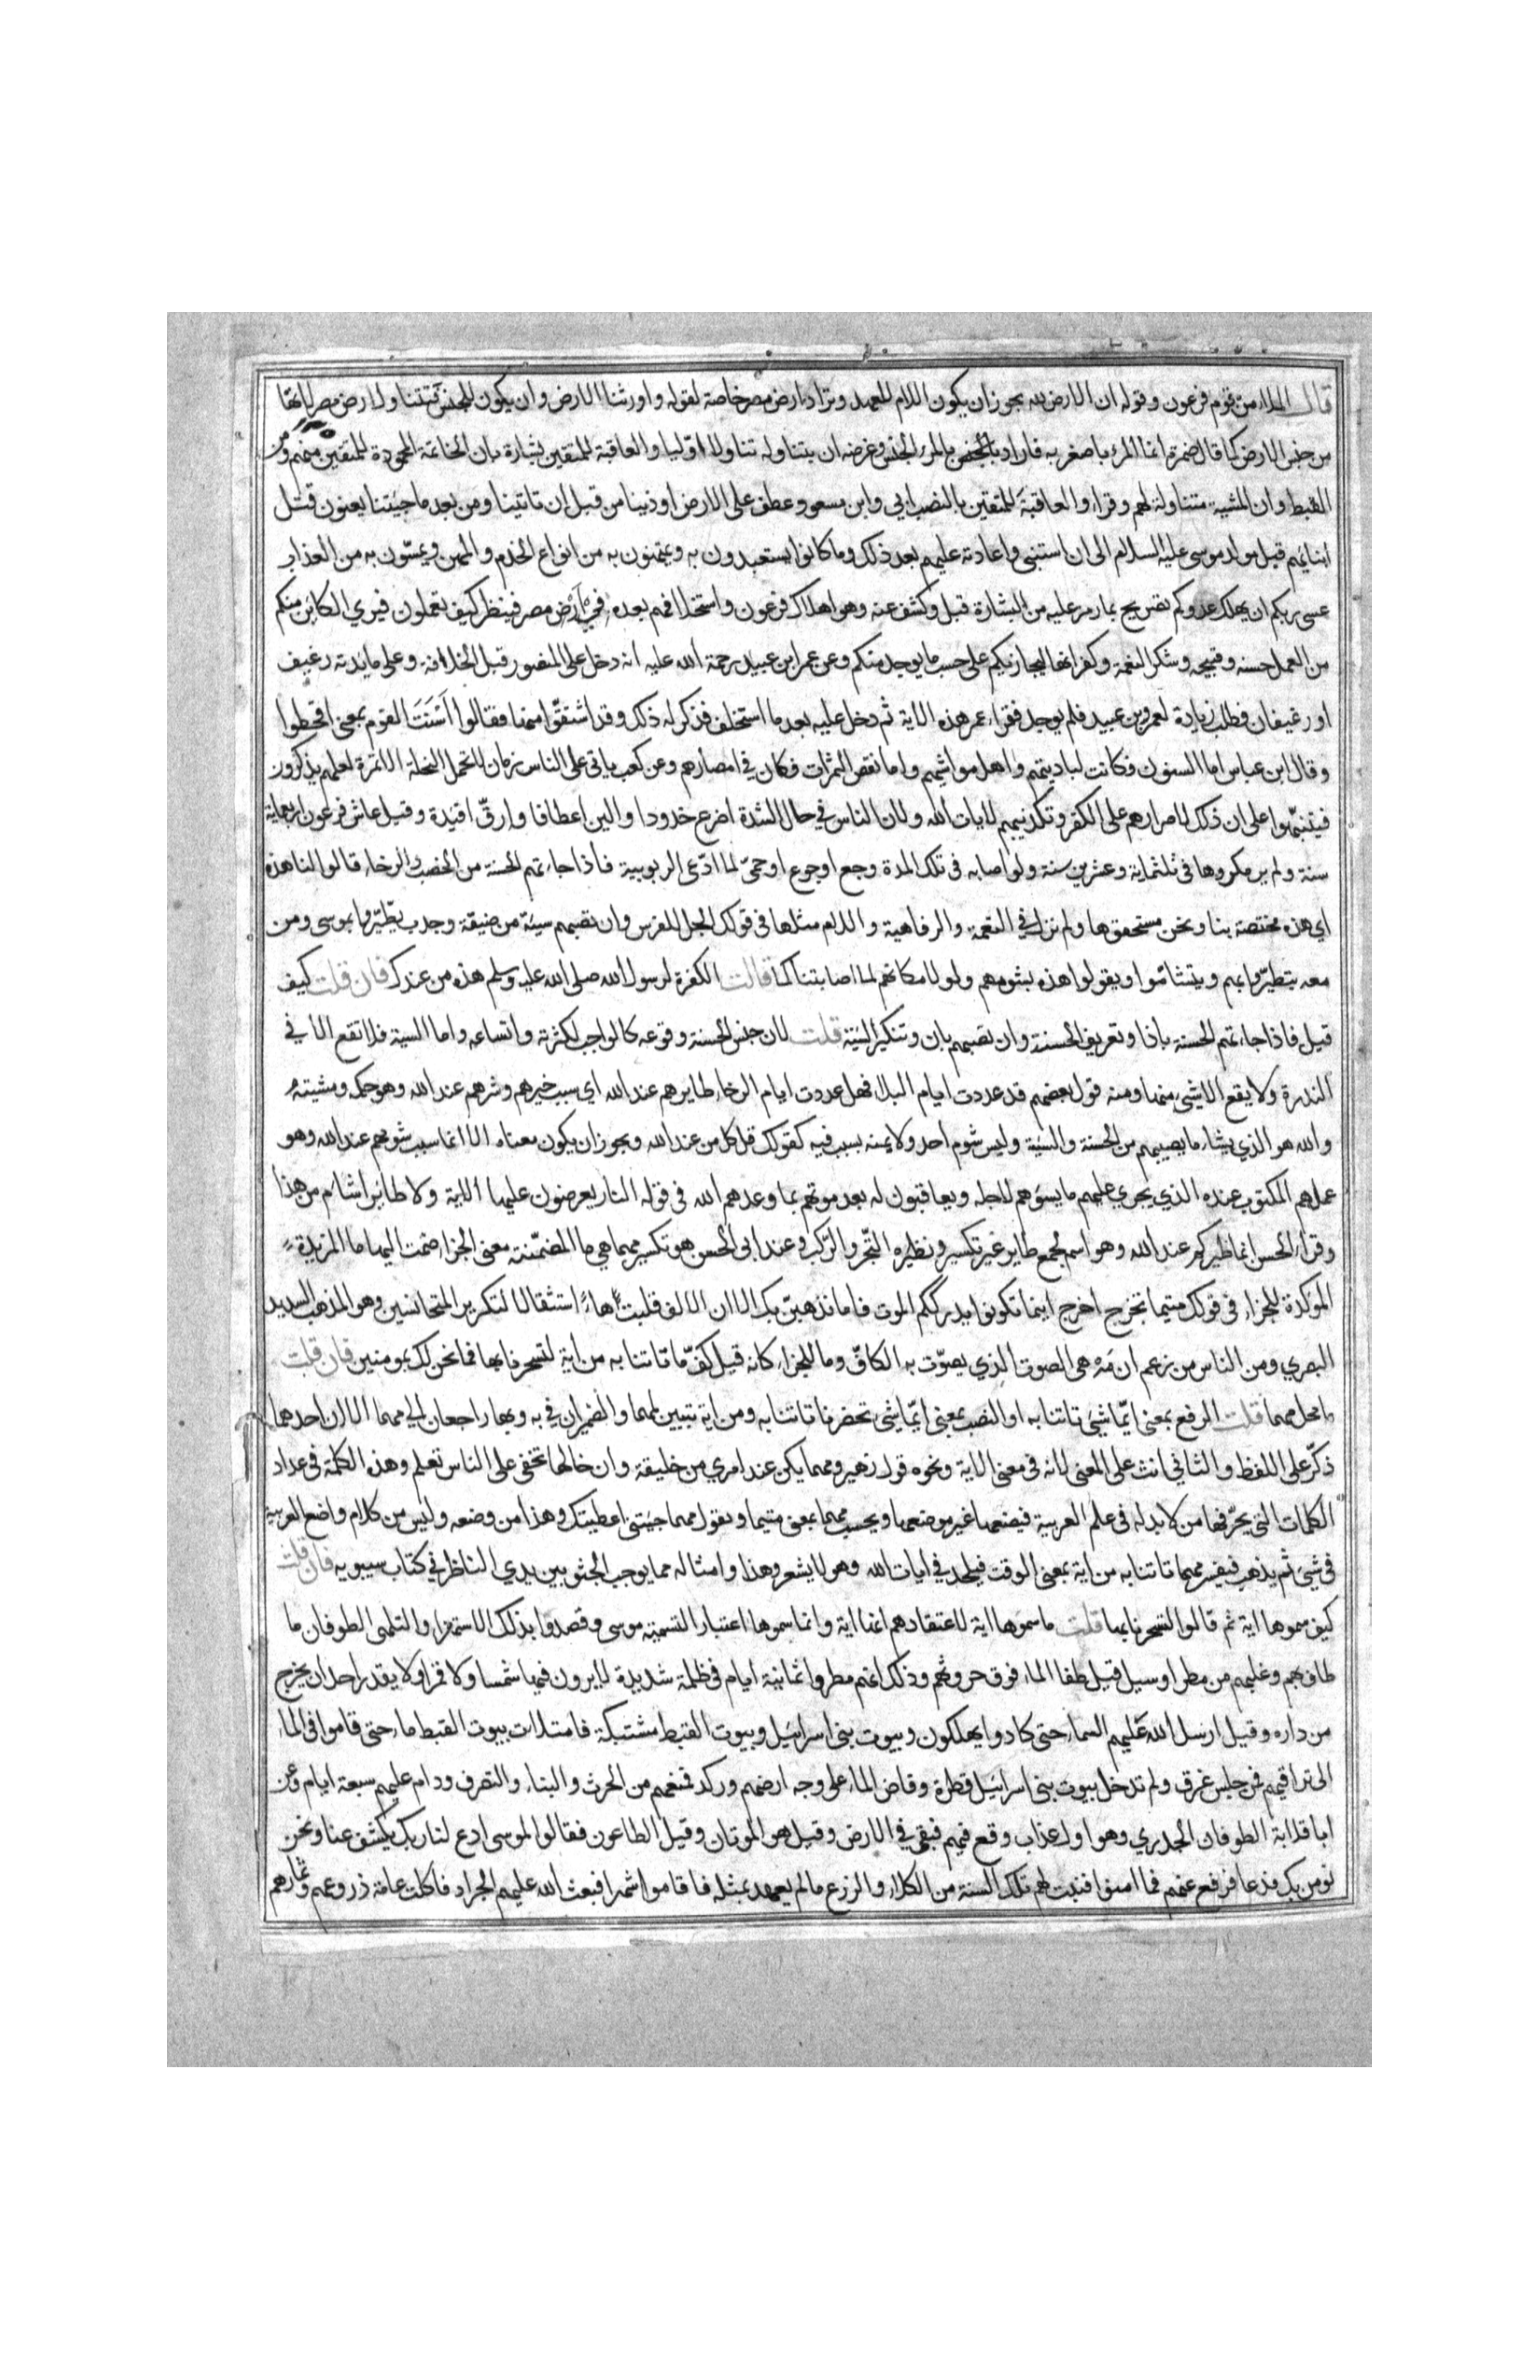 قال الملاء من قوم فرعون وقوله ان الارض لله يجوز ان يكون اللام للعهد وتراد ارض مصر خاصة لقوله واورثنا الارض وان يكون للجنس فتتناول ارض مصر لانها
من جنس الارض كما قال ضمرة انما المرء باصغريه فاراد بالجنس بالمرء الجنس وغرضه ان يتناوله تناولا اوليا والعاقبة للمتقين بشارة بان الخاتمة المحمودة للمتقين منهم ومن
القبط وان المشية متناولة لهم وقراء والعاقبةَ للمتقين بالنصب ابي وابن مسعود عطف على الارض اوذينا من قبل ان تاتينا ومن بعد ما جيئتنا يعنون قتل
ابنايهم قبل مولد موسى عليه السلام الى ان استنبى واعادته عليهم بعد ذلك وما كانوا يستعبدون به ويمتهنون به من انواع الخدم والمهن ويمسّون به من العذاب
عسى ربكم ان يهلك عدوكم تصريح بما رمز عليه من البشارة قبل وكشف عنه وهو اهلاك فرعون واستخلافهم بعده في ارض مصر فينظر كيف تعملون فيري الكاين منكم
من العمل حسنه وقبيحه وشكر النعمة وكفرانها ليجازيكم على حسب ما يوجد منكم وعن عمر ابن عبيد رحمة الله عليه انه دخل على المنصور قبل الخلافة وعلى مايدته رغيف
او رغيفان فطلب زيادة لعمرو بن عبيد فلم يوجد فقراء عمر هذه الاية ثم دخل عليه بعد ما استخلف فذكر له ذلك وقد اشتقّ اسمنا فقالوا اَسْنَتَ القوم بمعنى اقحطوا
وقال ابن عباس اما السنون فكانت لباديتهم واهل مواشيهم واما نقص الثمرات فكان في امصارهم وعن كعب ياتى على الناس زمان لا تحمل النخلة الا تمرة لعلهم يذكرون
فيتنبّهوا على ان ذلك لاصرارهم على الكفر وتكذيبهم لايات الله ولان الناس في حال الشدة اضرع خدودا والين اعطافا وارقّ افيدة وقيل عاش فرعون اربعماية
سنة ولم ير مكروها فى ثلثماية وعشرين سنة ولو اصابه فى تلك المدة وجع اوجوع اوحمىّ لما ادّعى الربوبية فاذا جاءتهم الحسنة من الخصب والرخاء قالوا لنا هذه
اي هذه مختصة بنا ونحن مستحقوها ولم نزل في النعمة والرفاهية واللام مثلها فى قولك الجل للفرس وان تصبهم سيئة من ضيقة وجدب يطّيروا بموسى ومن
معه يتطيّروا بهم ويتشاءموا ويقولوا هذه بشومهم ولولا مكانهم لما اصابتنا كما قالت الكفرة لرسول الله صلى الله عليه وسلم هذه من عندك فان قلت كيف
قيل فاذا جاءتهم الحسنة باذا وتعريف الحسنة وان تصبهم بان وتنكير السيّة قلت لان جنس الحسنة وقوعه كالواجب لكثرته واتساعه واما السية فلا تقع الا في
الندرة ولا يقع الا شيء منها ومنه قول بعضهم قد عددت ايام البلا فهل عددت ايام الرخاء طايرهم عند الله اي سبب خيرهم وشرهم عند الله وهو حكمه ومشيته
والله هو الذي يشاء ما يصيبهم من الحسنة والسيّة وليس شوم احد ولا يمنه بسبب فيه كقولك قل كل من عند الله ويجوز ان يكون معناه الا انما سبب شومهم عند الله وهو
عملهم المكتوب عنده الذي يجري عليهم ما يسؤهم لاجله ويعاقبون له بعد موتهم بما وعدهم الله فى قوله النار يعرضون عليها الاية ولا طاير اشام من هذا
وقراء الحسن انما طيركم عند الله وهو اسم لجمع طاير غير تكسير ونظيره التجر والركب وعند ابى الحسن هو تكسير مهما هي ما المضمّنة معنى الجزاء ضمت اليها ما المزيدة
الموكدة للجزاء فى قولك متيما تخرج اخرج اينما تكونوا يدرككم الموت فاما نذهبنّ بك الا ان الالف قلبت هاءً استثقالا لتكرير المتجانسين وهو المذهب السديد
البصري ومن الناس من زعم ان مَهْ هى الصوت الذي يصوّت به الكافّ وما للجزاء كانه قيل كفّ ما تاتنا به من اية لتسحرنا بها فما نحن لك بمومنين فان قلت
ما محل مهما قلت الرفع بمعنى ايّما شئ تاتنا به او النصب بمعنى ايّما شئ تحضرنا تاتنا به ومن اية تبيين لمهما والضميران في به وبها راجعان الى مهما الا ان احدهما
ذكّر على اللفظ والثاني انث على المعنى لانه فى معنى الاية ونحوه قول زهير ومهما يكن عند امري من خليقة وان خالها تخفى على الناس تعلم وهذه الكلمة في عداد
الكلمات التي يحرّفها من لا يد له فى علم العربية فيضعها غير موضعها ويحسب مهما بمعنى متيما ويقول مهما جيئتنى اعطيتك وهذا من وضعه وليس من كلام واضع العربية
فى شئ ثم يذهب فيفسر مهما تاتنا به من اية بمعنى الوقت فيلحد في ايات الله وهو لا يشعر وهذا وامثاله مما يوجب الجثو بين يدي الناظر في كتاب سيبويه فان قلت
كيف سموها اية ثم قالوا لتسحرنا بها قلت ما سموها اية لاعتقادهم انها اية وانما سموها اعتبارا لتسمية موسى وقصدوا بذلك الاستهزاء والتلهى الطوفان ما
طاف بهم وغلبهم من مطر او سيل قيل طفا الماء فوق حروثهم وذلك انهم مطروا ثمانية ايام فى ظلمة شديدة لا يرون فيها شمسا ولا قمرا ولا يقدر احد ان يخرج
من داره وقيل ارسل الله عليهم السماء حتى كادوا يهلكون وبيوت بنى اسرائيل وبيوت القبط مشتبكة فامتلات بيوت القبط ماء حتى قاموا فى الماء
الى تراقيهم فمن جلس غرق ولم تدخل بيوت بنى اسرائيل قطرة وفاض الماء على وجه ارضهم وركد فمنعهم من الحرث والبناء والتصرف ودام عليهم سبعة ايام وعن
ابا قلابة الطوفان الجدري وهو اول عذاب وقع فيهم فبقى في الارض وقيل هو الموتان وقيل الطاعون فقالوا لموسى ادع لنا ربك يكشف عنا ونحن
نومن بك فدعا فرفع عنهم فما امنوا فنبت لهم تلك السنة من الكلاء والزرع ما لم يعهد بمثله فاقاموا شهرا فبعث الله عليهم الجراد فاكلت عامة زروعهم وثمارهم